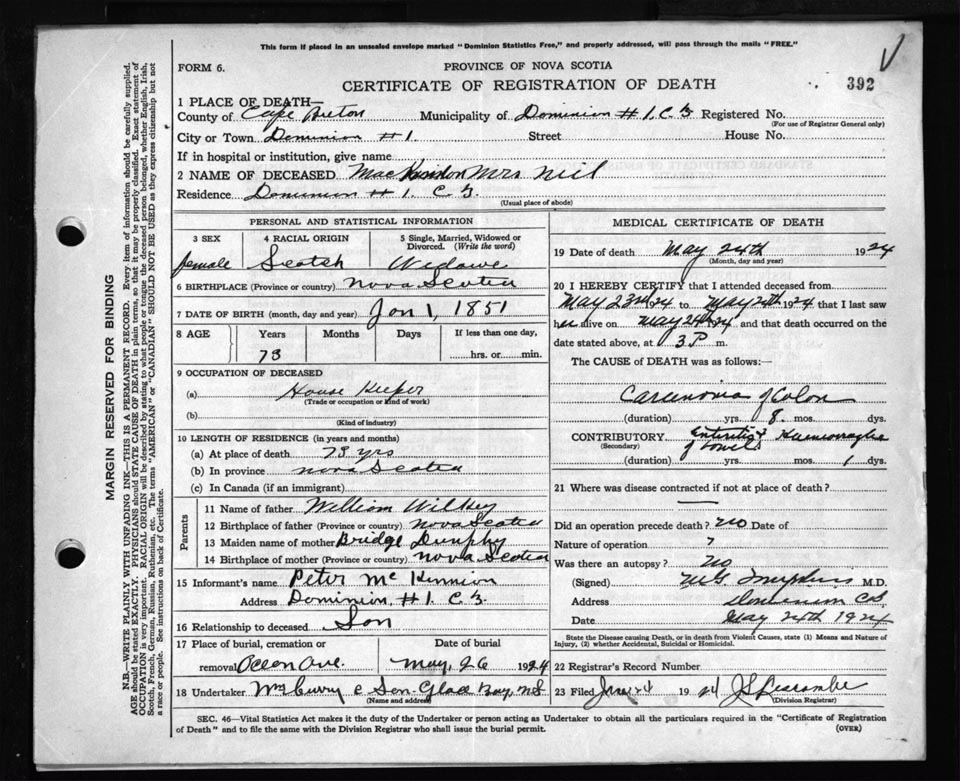 This form if placed in an unsealed envelope marked "Dominion Statistics Free," and properly addressed, will pass through the mails "FREE."
FORM 6.
PROVINCE OF NOVA SCOTIA
CERTIFICATE OF REGISTRATION OF DEATH
392
1 PLACE OF DEATH
County of Cape Breton Municipality of Dominion # 1, C. B. Registered No.
(For use of Registrar General only)
City or Town Dominion # 1. Street House No.
If in hospital or institution, give name
2 NAME OF DECEASED MacKinnon Mrs Neil
Residence Dominion # 1. C. B.
(Usual place of abode)
PERSONAL AND STATISTICAL INFORMATION
3 SEX 4 RACIAL ORIGIN 5 Single, Married, Widowed or Divorced. (Write the word)
female Scotch Widowe
6 BIRTHPLACE (Province or country) Nova Scotia
7 DATE OF BIRTH (month, day and year) Jan 1, 1851
8 AGE Years Months Days If less than one day,
73 hrs. or min.
9 OCCUPATION OF DECEASED
(a) House Keeper
(Trade or occupation or kind of work)
(b)
(Kind of industry)
10 LENGTH OF RESIDENCE (in years and months)
(a) At place of death 73 yrs
(b) In province Nova Scotia
(c) In Canada (if an immigrant)
Parents
11 Name of father William Wilkey
12 Birthplace of father (Province or country) Nova Scotia
13 Maiden name of mother Bridge Dunphy
14 Birthplace of mother (Province or country) Nova Scotia
15 Informant's name Peter Mc Kinnion
Address Dominion, # 1. C. B.
16 Relationship to deceased Son
17 Place of burial, cremation or removal Ocean Ave. Date of burial May, 26 1924
18 Undertaker Wm Curry & Son Glace Bay, N.S
(Name and address)
MEDICAL CERTIFICATE OF DEATH
19 Date of death May 24th 1924
(Month, day and year)
20 I HEREBY CERTIFY that I attended deceased from
May 23rd 1924 to May 24th 1924 that I last saw
her alive on May 24th 1924 and that death occurred on the
date stated above, at 3 P m.
The CAUSE of DEATH was as follows:—
Carcinoma of Colon
(duration) yrs. 8 mos. dys.
CONTRIBUTORY
(Secondary) of bowel
(duration) yrs. mos. 1 dys.
21 Where was disease contracted if not at place of death?
Did an operation precede death? No Date of
Nature of operation ?
Was there an autopsy? No
(Signed) M.D.
Address Dominion CB
Date May 24th 1924
State the Disease causing Death, or in death from Violent Causes, state (1) Means and Nature of Injury, (2) whether Accidental, Suicidal or Homicidal.
22 Registrar's Record Number
23 Filed 1924
(Division Registrar)
SEC. 46—Vital Statistics Act makes it the duty of the Undertaker or person acting as Undertaker to obtain all the particulars required in the "Certificate of Registration
of Death" and to file the same with the Division Registrar who shall issue the burial permit.
(OVER)
MARGIN RESERVED FOR BINDING
N.B.—WRITE PLAINLY WITH UNFADING INK—THIS IS A PERMANENT RECORD. Every item of information should be carefully supplied.
AGE should be stated EXACTLY. PHYSICIANS should STATE CAUSE OF DEATH in plain terms, so that it may be properly classified. Exact statement of
OCCUPATION is very important. RACIAL ORIGIN will be described by stating to what people or tongue the deceased person belonged, whether English, Irish,
Scotch, French, German, Russian, Ruthenian, etc. The terms "AMERICAN" or "CANADIAN" SHOULD NOT BE USED as they express citizenship but not
a race or people. See instructions on back of Certificate.